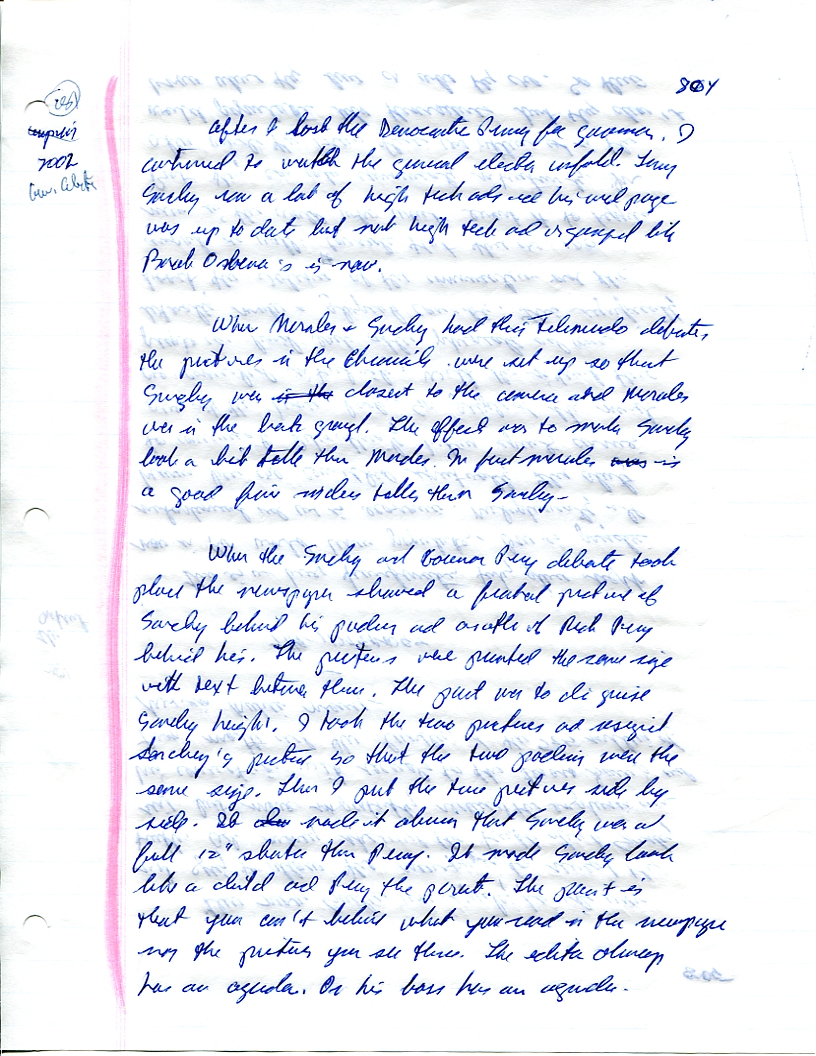 804
2002
After I lost the Democratic Primary for governor, I
continued to watch the general election unfold. Tony
Sanchez ran a lot of high tech ads and his web page
was up to date but not high tech and organized like
Barak Obama's is now.
When Morales + Sanchez had their Telemundo debates,
the pictures in the Chronicle were set up so that
Sanchez was in the closest to the camera and Morales
was in the back ground. The effect was to make Sanchez
look a bit taller than Morales. In fact Morales was is
a good four inches taller than Sanchez -
When the Sanchez and Governor Perry debate took
place the newspaper showed a frontal picture of
Sanchez behind his podium and another of Rick Perry
behind his. The pictures were printed the same size
with text between them. The point was to disguise
Sanchez height. I took the two pictures and resized
Sanchez's picture so that the two podiums were the
same size. Then I put the two pictures side by
side. It made it obvious that Sanchez was a
full 12" shorter than Perry. It made Sanchez look
like a child and Perry the parent. The point is
that you can't believe what you read in the newspaper
nor the pictures you see there. The editor always
has an agenda. Or his boss has an agenda.